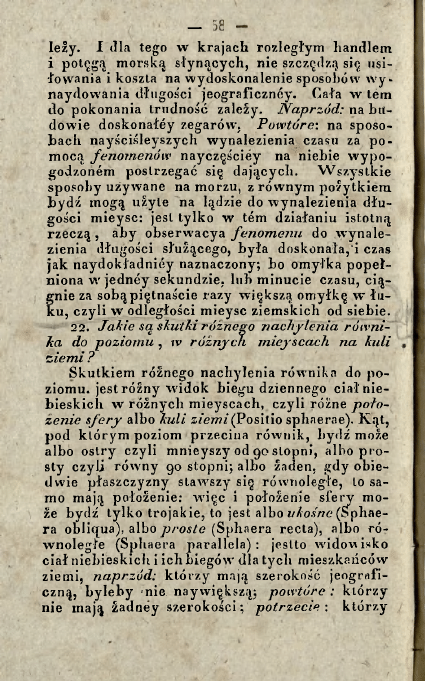 — 58 —
leży. I dla tego w krajach rozległym handlem
i potęgą morską słynących, nie szczędzą się usi-
łowania i koszta na wydoskonalenie sposobów wy-
naydowania długości jeograficznéy. Cała w tem
do pokonania trudność zależy. Naprzód: na bu-
dowie doskonałéy zegarów. Powtóre: na sposo-
bach nayściśleyszych wynalezienia czasu za po-
mocą fenomenów nayczęściéy na niebie wypo-
godzoném postrzegać się dających. Wszystkie
sposoby używane na morzu, z równym pożytkiem
bydź mogą użyte na lądzie do wynalezienia dłu-
gości mieysc: jest tylko w tém działaniu istotną
rzeczą, aby obserwacya fenomenu do wynale-
zienia długości służącego, była doskonała, i czas
jak naydokładniéy naznaczony; bo omyłka popeł-
niona w jednéy sekundzie, lub minucie czasu, cią-
gnie za sobą piętnaście razy większą omyłkę w łu-
ku, czyli w odległości mieysc ziemskich od siebie.
22. Jakie są skutki różnego nachylenia równi-
ka do poziomu, w różnych mieyscach na kuli
ziemi?
Skutkiem różnego nachylenia równika do po-
ziomu, jest różny widok biegu dziennego ciał nie-
bieskich w różnych mieyscach, czyli różne poło-
żenie sfery albo kuli ziemi (Positio sphaerae). Kąt,
pod którym poziom przecina równik, bydź może
albo ostry czyli mnieyszy od 90 stopni, albo pro-
sty czyli równy 90 stopni; albo żaden, gdy obie-
dwie płaszczyzny stawszy się równoległe, to sa-
mo mają położenie: więc i położenie sfery mo-
że bydź tylko trojakie, to jest albo ukośne (Sphae-
ra obliqua), albo proste (Sphaera recta), albo ró-
wnoległe (Sphaera parallela): jestto widowisko
ciał niebieskich i ich biegów dla tych mieszkańców
ziemi, naprzód: którzy mają szerokość jeografi-
czną, byleby nie naywiększą; powtóre: którzy
nie mają żadney szerokości; potrzecie: którzy